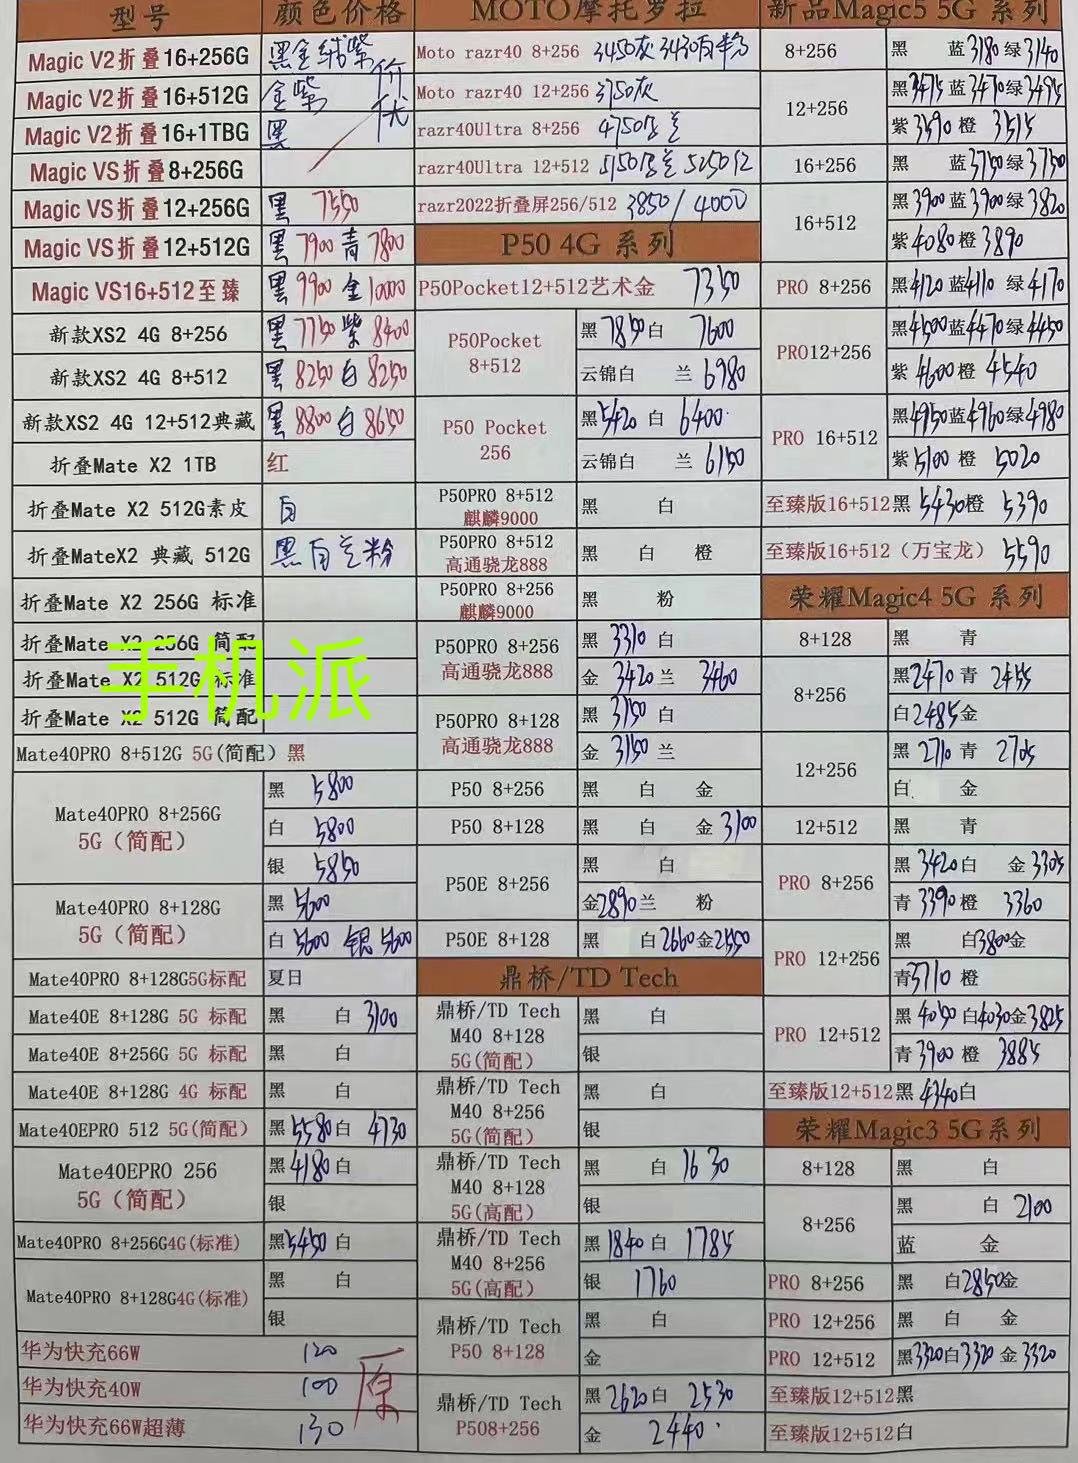 型号 颜色价格
Magic V2折叠16+256G 黑金绒紫
Magic V2折叠16+512G 金紫 价优
Magic V2折叠16+1TBG 黑
Magic VS折叠8+256G
Magic VS折叠12+256G 黑 7550
Magic VS折叠12+512G 黑 7900 青 7800
Magic VS16+512至臻 黑 9900 金 10000
新款XS2 4G 8+256 黑 7750 紫 8400
新款XS2 4G 8+512 黑 8250 白 8250
新款XS2 4G 12+512典藏 黑 8800 白 8650
折叠Mate X2 1TB 红
折叠Mate X2 512G素皮 白
折叠MateX2 典藏 512G 黑白兰粉
折叠Mate X2 256G 标准
折叠Mate X2 256G 简配
折叠Mate X2 512G 标准
折叠Mate X2 512G 简配
手机派
Mate40PRO 8+512G 5G(简配) 黑
Mate40PRO 8+256G 5G（简配） 黑 5800
白 5800
银 5850
Mate40PRO 8+128G 5G（简配） 黑 5600
白 5600 银 5600
Mate40PRO 8+128G5G标配 夏日
Mate40E 8+128G 5G 标配 黑 白 3100
Mate40E 8+256G 5G 标配 黑 白
Mate40E 8+128G 4G 标配 黑 白
Mate40EPRO 512 5G(简配) 黑 5580 白 4730
Mate40EPRO 256 5G（简配） 黑 4180 白
银
Mate40PRO 8+256G4G(标准) 黑 5450 白
Mate40PRO 8+128G4G(标准) 黑 白
银
华为快充66W 120
华为快充40W 100 原
华为快充66W超薄 130
MOTO摩托罗拉
Moto razr40 8+256 3450灰 3430白
Moto razr40 12+256 3750灰
razr40Ultra 8+256 4750 兰
razr40Ultra 12+512 5150 兰 5250红
razr2022折叠屏256/512 3850/4000
P50 4G 系列
P50Pocket12+512艺术金 7350
P50Pocket 8+512 黑 7850 白 7600
云锦白 兰 6980
P50 Pocket 256 黑 5420 白 6400
云锦白 兰 6150
P50PRO 8+512 麒麟9000 黑 白
P50PRO 8+512 高通骁龙888 黑 白 橙
P50PRO 8+256 麒麟9000 黑 粉
P50PRO 8+256 高通骁龙888 黑 3310 白
金 3420 兰 3460
P50PRO 8+128 高通骁龙888 黑 3150 白
金 3150 兰
P50 8+256 黑 白 金
P50 8+128 黑 白 金 3100
P50E 8+256 黑 白
金 2890 兰 粉
P50E 8+128 黑 白 2660 金 2550
鼎桥/TD Tech
鼎桥/TD Tech M40 8+128 5G(简配) 黑 白
银
鼎桥/TD Tech M40 8+256 5G(简配) 黑 白
银
鼎桥/TD Tech M40 8+128 5G(高配) 黑 白 1630
银
鼎桥/TD Tech M40 8+256 5G(高配) 黑 1840 白 1785
银 1760
鼎桥/TD Tech P50 8+128 黑 白
金
鼎桥/TD Tech P508+256 黑 2620 白 2530
金 2440
新品Magic5 5G 系列
8+256 黑 蓝 3180 绿 3140
12+256 黑 3475 蓝 3470 绿 3495
紫 3590 橙 3515
16+256 黑 蓝 3750 绿 3750
16+512 黑 3900 蓝 3900 绿 3820
紫 4080 橙 3890
PRO 8+256 黑 4120 蓝 4110 绿 4170
PRO12+256 黑 4500 蓝 4470 绿 4450
紫 4600 橙 4540
PRO 16+512 黑 4950 蓝 4960 绿 4980
紫 5100 橙 5020
至臻版16+512 黑 5430 橙 5390
至臻版16+512（万宝龙） 5590
荣耀Magic4 5G 系列
8+128 黑 青
8+256 黑 2470 青 2455
白 2485 金
12+256 黑 2710 青 2705
白 金
12+512 黑 青
PRO 8+256 黑 3420 白 金 3305
青 3390 橙 3360
PRO 12+256 黑 白 3800 金
青 3710 橙
PRO 12+512 黑 4050 白 4030 金 3825
青 3900 橙 3885
至臻版12+512 黑 4340 白
荣耀Magic3 5G系列
8+128 黑 白
8+256 黑 白 2100
蓝 金
PRO 8+256 黑 白 2850 金
PRO 12+256 黑 白 金
PRO 12+512 黑 3320 白 3320 金 3320
至臻版12+512 黑
至臻版12+512 白